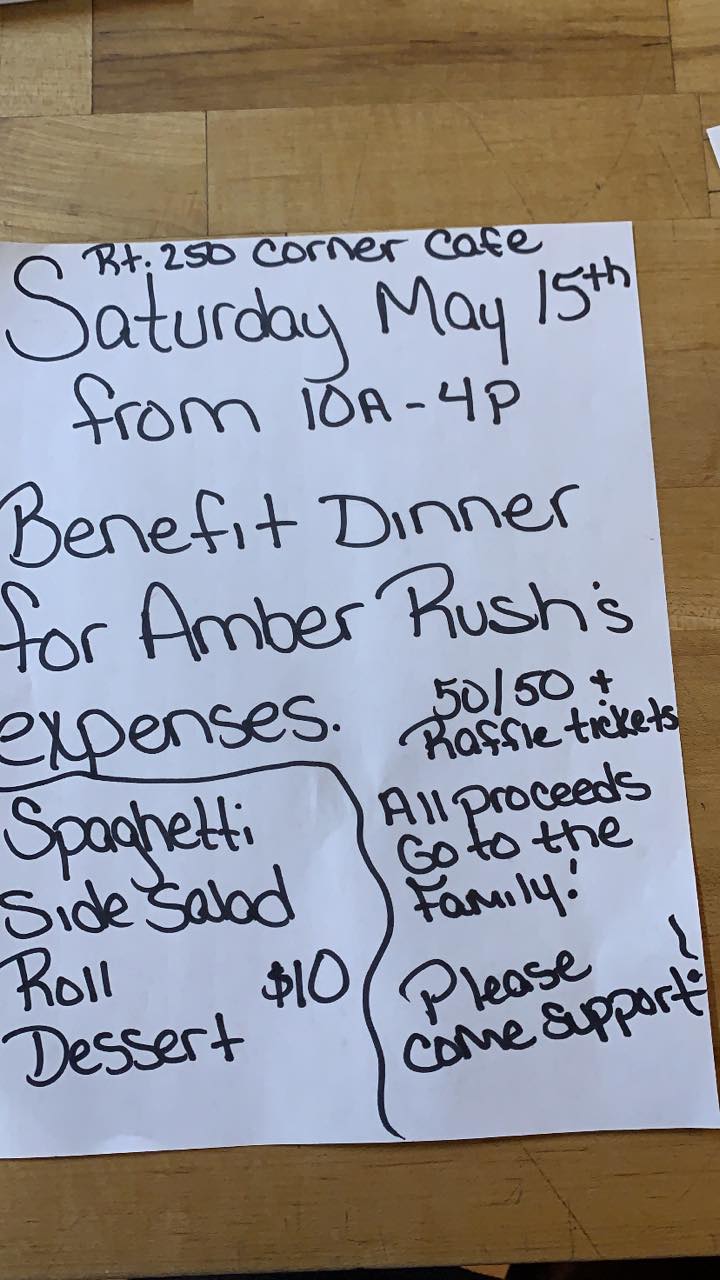 Rt. 250 Corner Cafe
Saturday May 15th
from 10A - 4P
Benefit Dinner
for Amber Rush's
expenses.
Spaghetti
Side Salad
Roll $10
Dessert
50/50 +
Raffle tickets
All proceeds
Go to the
Family!
Please
come support!